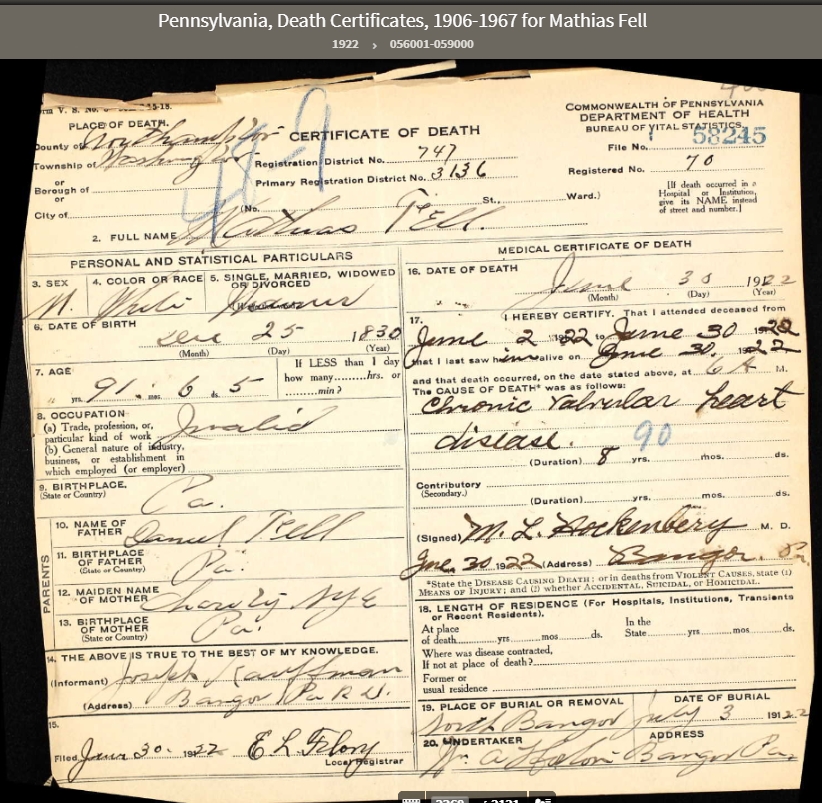 Pennsylvania, Death Certificates, 1906-1967 for Mathias Fell
1922 › 056001-059000
PLACE OF DEATH.
County of Northampton
Township of Washington
or
Borough of
or
City of
CERTIFICATE OF DEATH
Registration District No. 747
Primary Registration District No. 3136
(No. St., Ward.)
COMMONWEALTH OF PENNSYLVANIA
DEPARTMENT OF HEALTH
BUREAU OF VITAL STATISTICS
File No. 58245
Registered No. 70
[If death occurred in a
Hospital or Institution,
give its NAME instead
of street and number.]
2. FULL NAME Mathias Fell.
PERSONAL AND STATISTICAL PARTICULARS
3. SEX
M.
4. COLOR OR RACE
White
5. SINGLE, MARRIED, WIDOWED
OR DIVORCED
6. DATE OF BIRTH
Dec 25 1830
(Month) (Day) (Year)
7. AGE
91 yrs. 6 mos. 5 ds.
If LESS than 1 day
how many hrs. or
min?
8. OCCUPATION
(a) Trade, profession, or,
particular kind of work Invalid
(b) General nature of industry,
business, or establishment in
which employed (or employer)
9. BIRTHPLACE.
(State or Country)
Pa.
PARENTS
10. NAME OF
FATHER Daniel Fell
11. BIRTHPLACE
OF FATHER
(State or Country) Pa.
12. MAIDEN NAME
OF MOTHER Charity Nye
13. BIRTHPLACE
OF MOTHER
(State or Country) Pa.
14. THE ABOVE IS TRUE TO THE BEST OF MY KNOWLEDGE.
(Informant) Joseph Kauffman
(Address) Bangor Pa R.D.
15.
Filed June 30. 1922 E L Flory
Local Registrar
MEDICAL CERTIFICATE OF DEATH
16. DATE OF DEATH
June 30 1922
(Month) (Day) (Year)
17. I HEREBY CERTIFY. That I attended deceased from
June 2 1922 to June 30 1922
that I last saw him alive on June 30. 1922
and that death occurred, on the date stated above, at 6 M.
The CAUSE OF DEATH* was as follows:
Chronic valvular heart
disease. 90
(Duration) 8 yrs. mos. ds.
Contributory
(Secondary.)
(Duration) yrs. mos. ds.
(Signed) M. L. Hockenbery M. D.
June 30 1922 (Address) Bangor. Pa.
*State the DISEASE CAUSING DEATH; or in deaths from VIOLENT CAUSES, state (1)
MEANS OF INJURY; and (2) whether ACCIDENTAL, SUICIDAL, OR HOMICIDAL.
18. LENGTH OF RESIDENCE (For Hospitals, Institutions, Transients
or Recent Residents).
At place
of death yrs. mos. ds.
In the
State yrs. mos. ds.
Where was disease contracted,
If not at place of death?
Former or
usual residence
19. PLACE OF BURIAL OR REMOVAL
North Bangor
DATE OF BURIAL
July 3 1922
20. UNDERTAKER
ADDRESS
Bangor Pa.